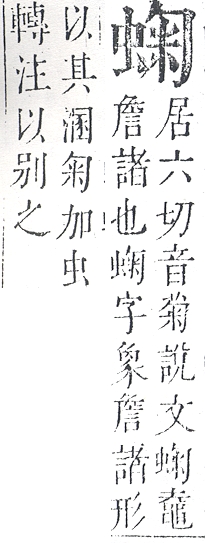 ⿰虫匊
居六切音菊說文⿰虫匊鼀
詹諸也⿰虫匊字象詹諸形
以其溷匊加虫
轉注以别之